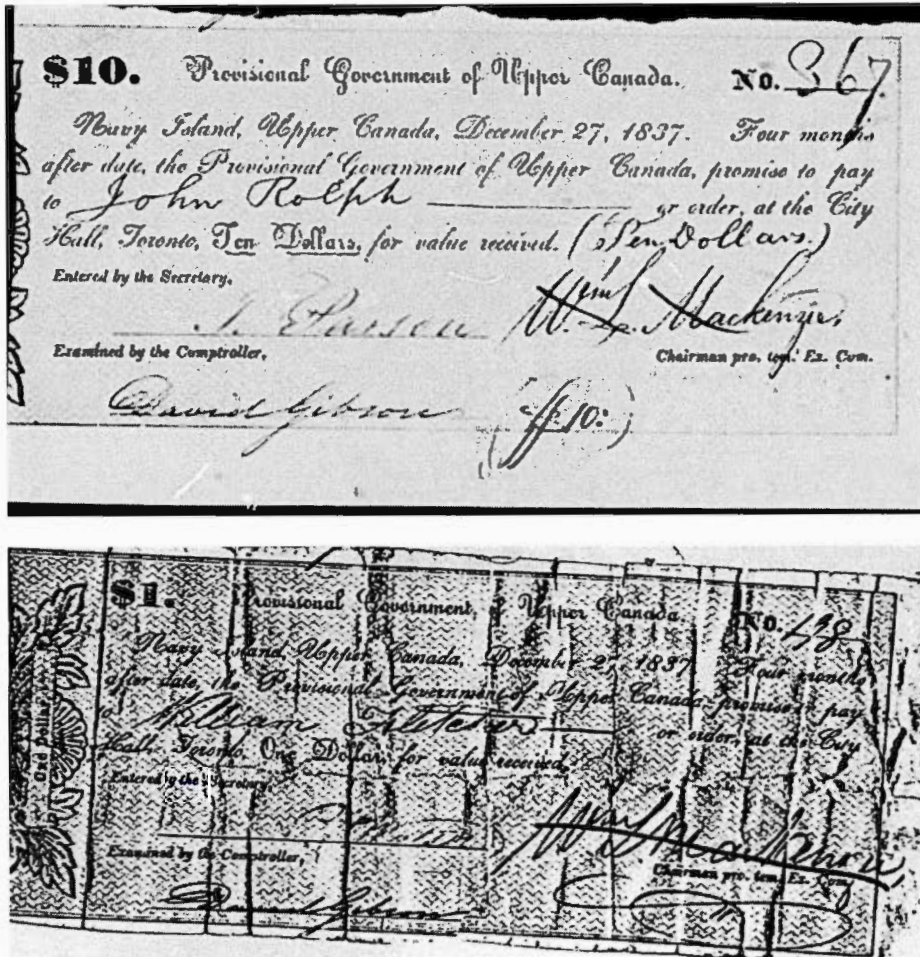 $10. Provisional Government of Upper Canada. No. 867
Navy Island, Upper Canada, December 27, 1837. Four months
after date, the Provisional Government of Upper Canada, promise to pay
to John Rolph or order, at the City
Hall, Toronto, Ten Dollars, for value received. (Ten Dollars.)
Entered by the Secretary,
Wm. L. Mackenzie,
Examined by the Comptroller, Chairman pro. tem. Ex. Com.
David Gibson 10:
$1. Provisional Government of Upper Canada. No.
Navy Island Upper Canada, December 27, 1837 Four months
after date, the Provisional Government of Upper Canada promise to pay
to William or order, at the City
Hall Toronto, One Dollar, for value received.
One Dollar
Entered by the Secretary,
Wm L Mackenzie
Examined by the Comptroller, Chairman pro. tem. Ex. Com.
David Gibson